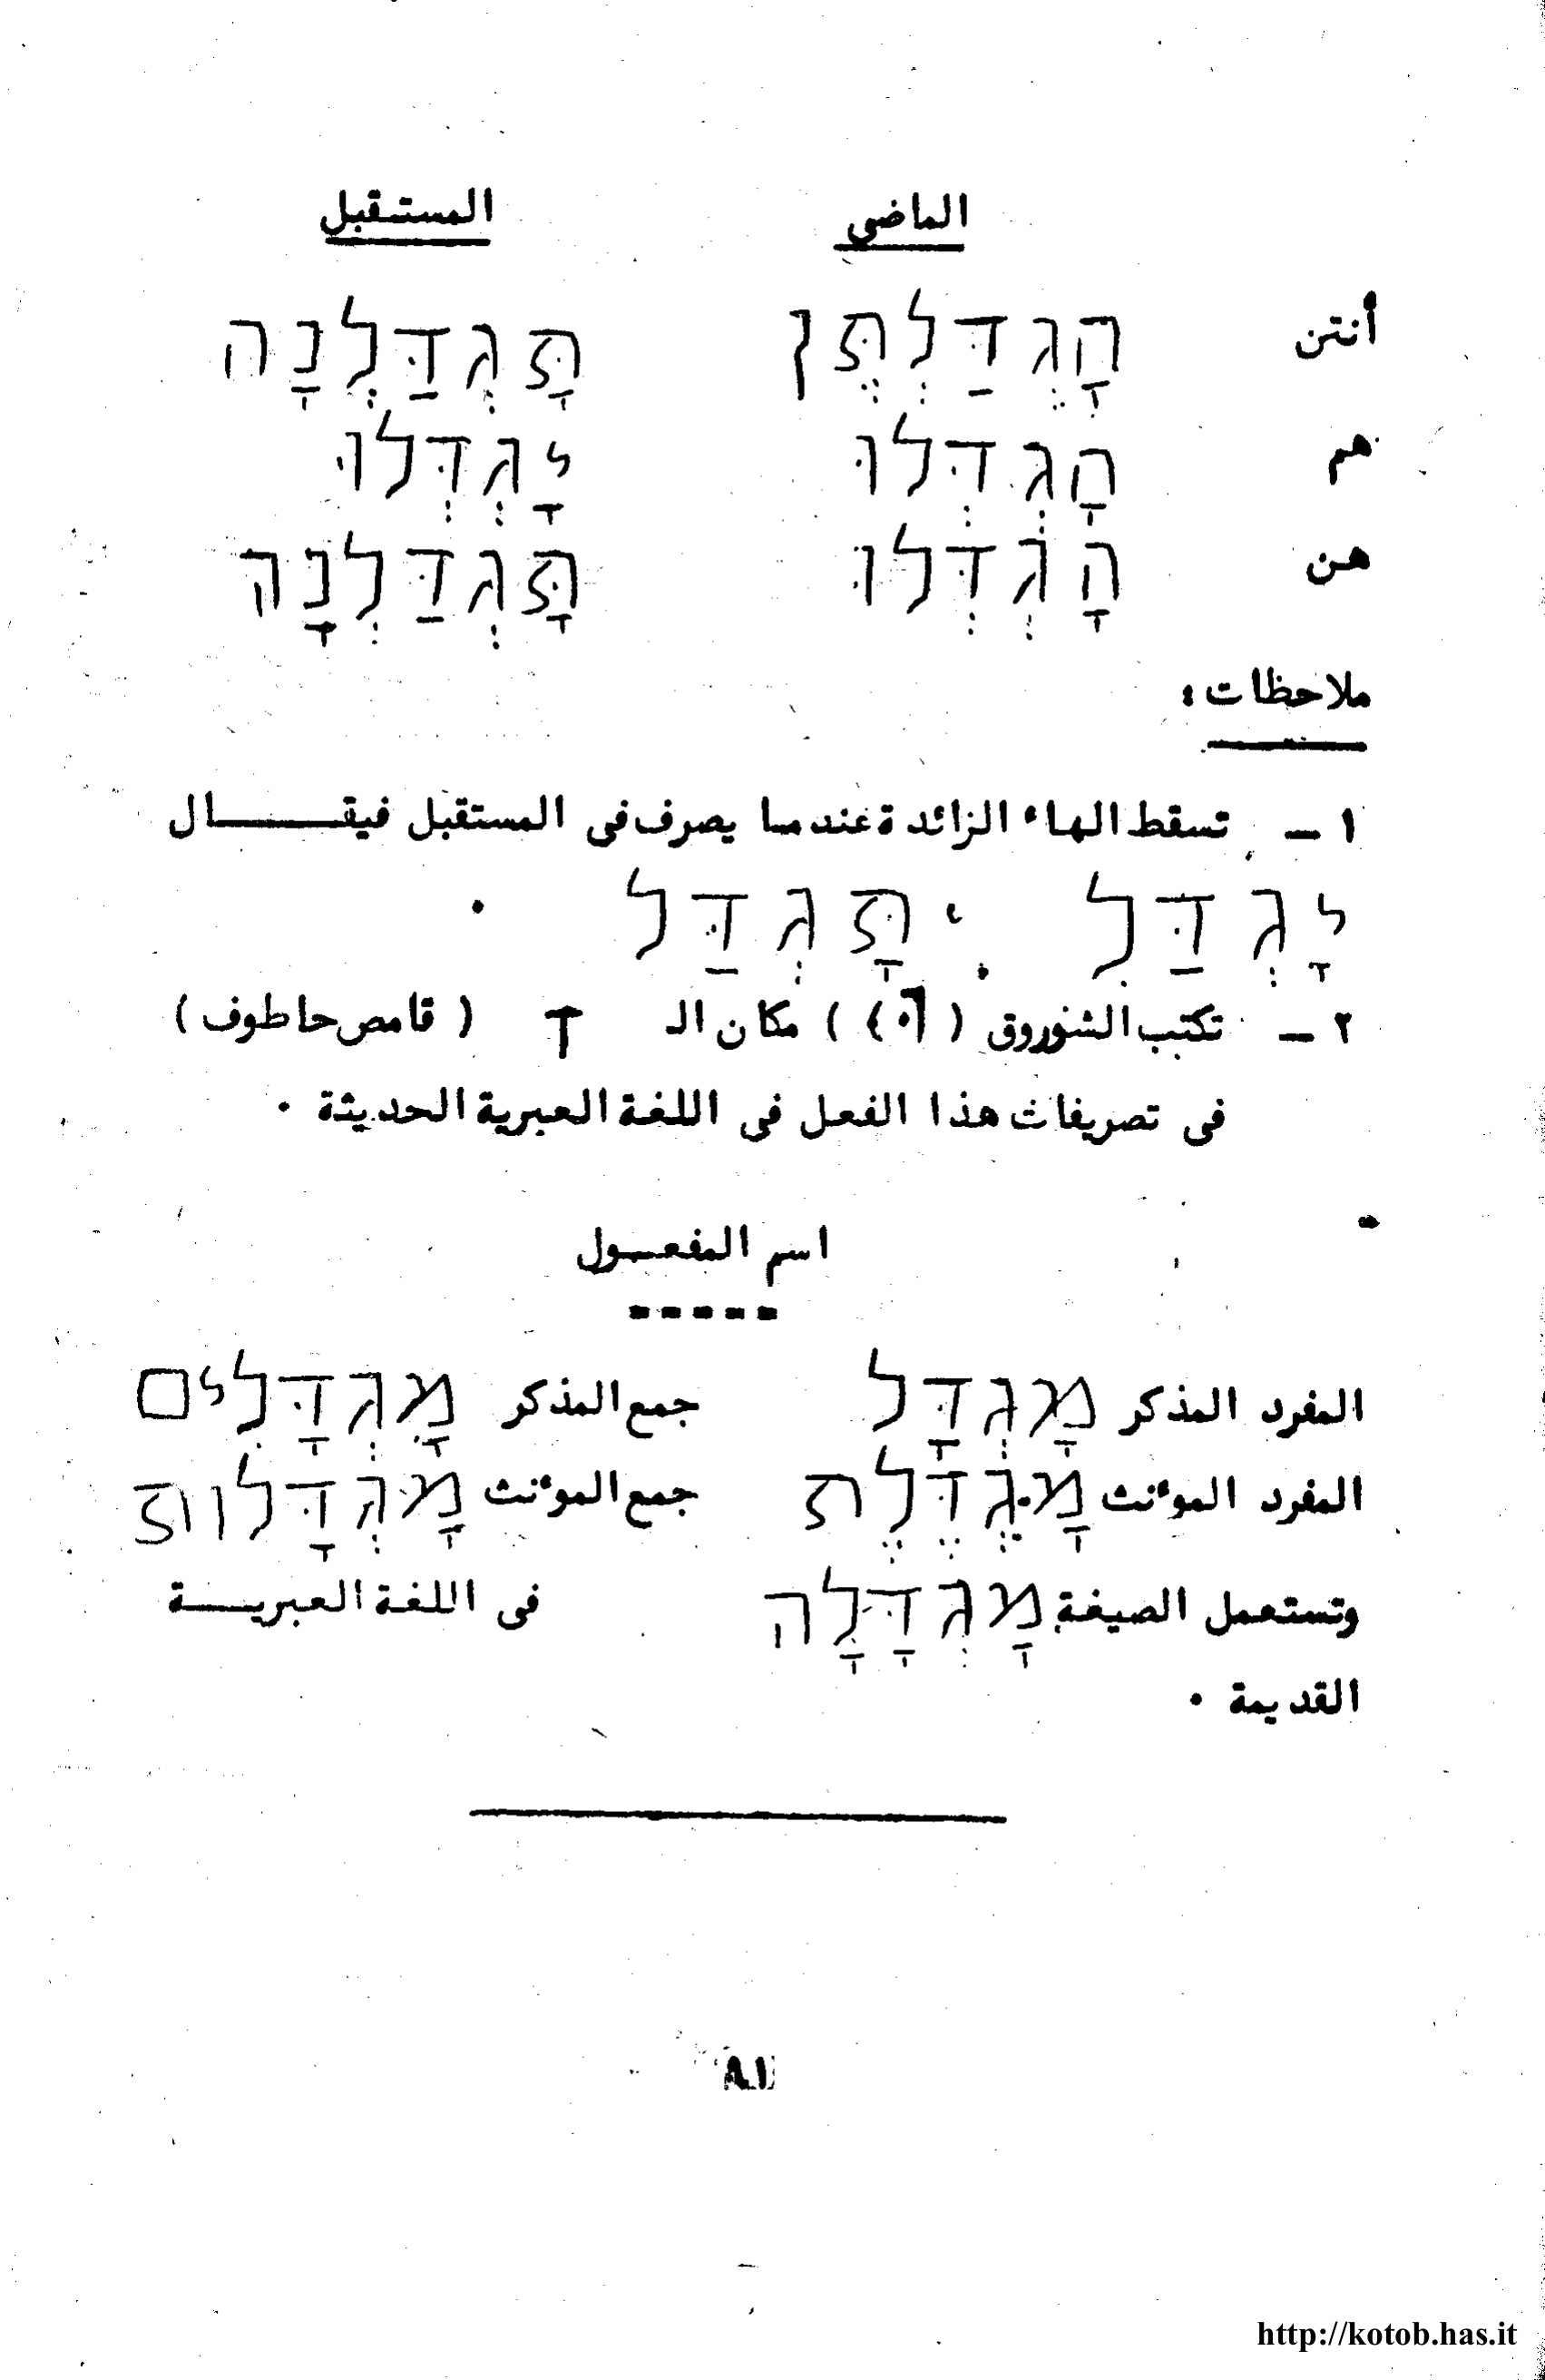 الماضى المستقبل
أنتن הָגְדַּלְתֶּן תָּגְדַּלְנָה
هم הָגְדְּלוּ יָגְדְּלוּ
هن הָגְדְּלוּ תָּגְדַּלְנָה
ملاحظات :
١ – تسقط الهاء الزائدة عندما يصرف فى المستقبل فيقال
יָגְדַּל ، תָּגְדַּל .
٢ – تكتب الشوروق ( ) مكان الـ ָ ( قامص حاطوف )
فى تصريفات هذا الفعل فى اللغة العبرية الحديثة .
اسم المفعول
المفرد المذكر מָגְדָּל جمع المذكر מָגְדָּלִים
المفرد المؤنث מָגְדֶּלֶת جمع المؤنث מָגְדָּלוֹת
وتستعمل الصيغة מָגְדָּלָה فى اللغة العبرية
القديمة .
٨١
http://kotob.has.it